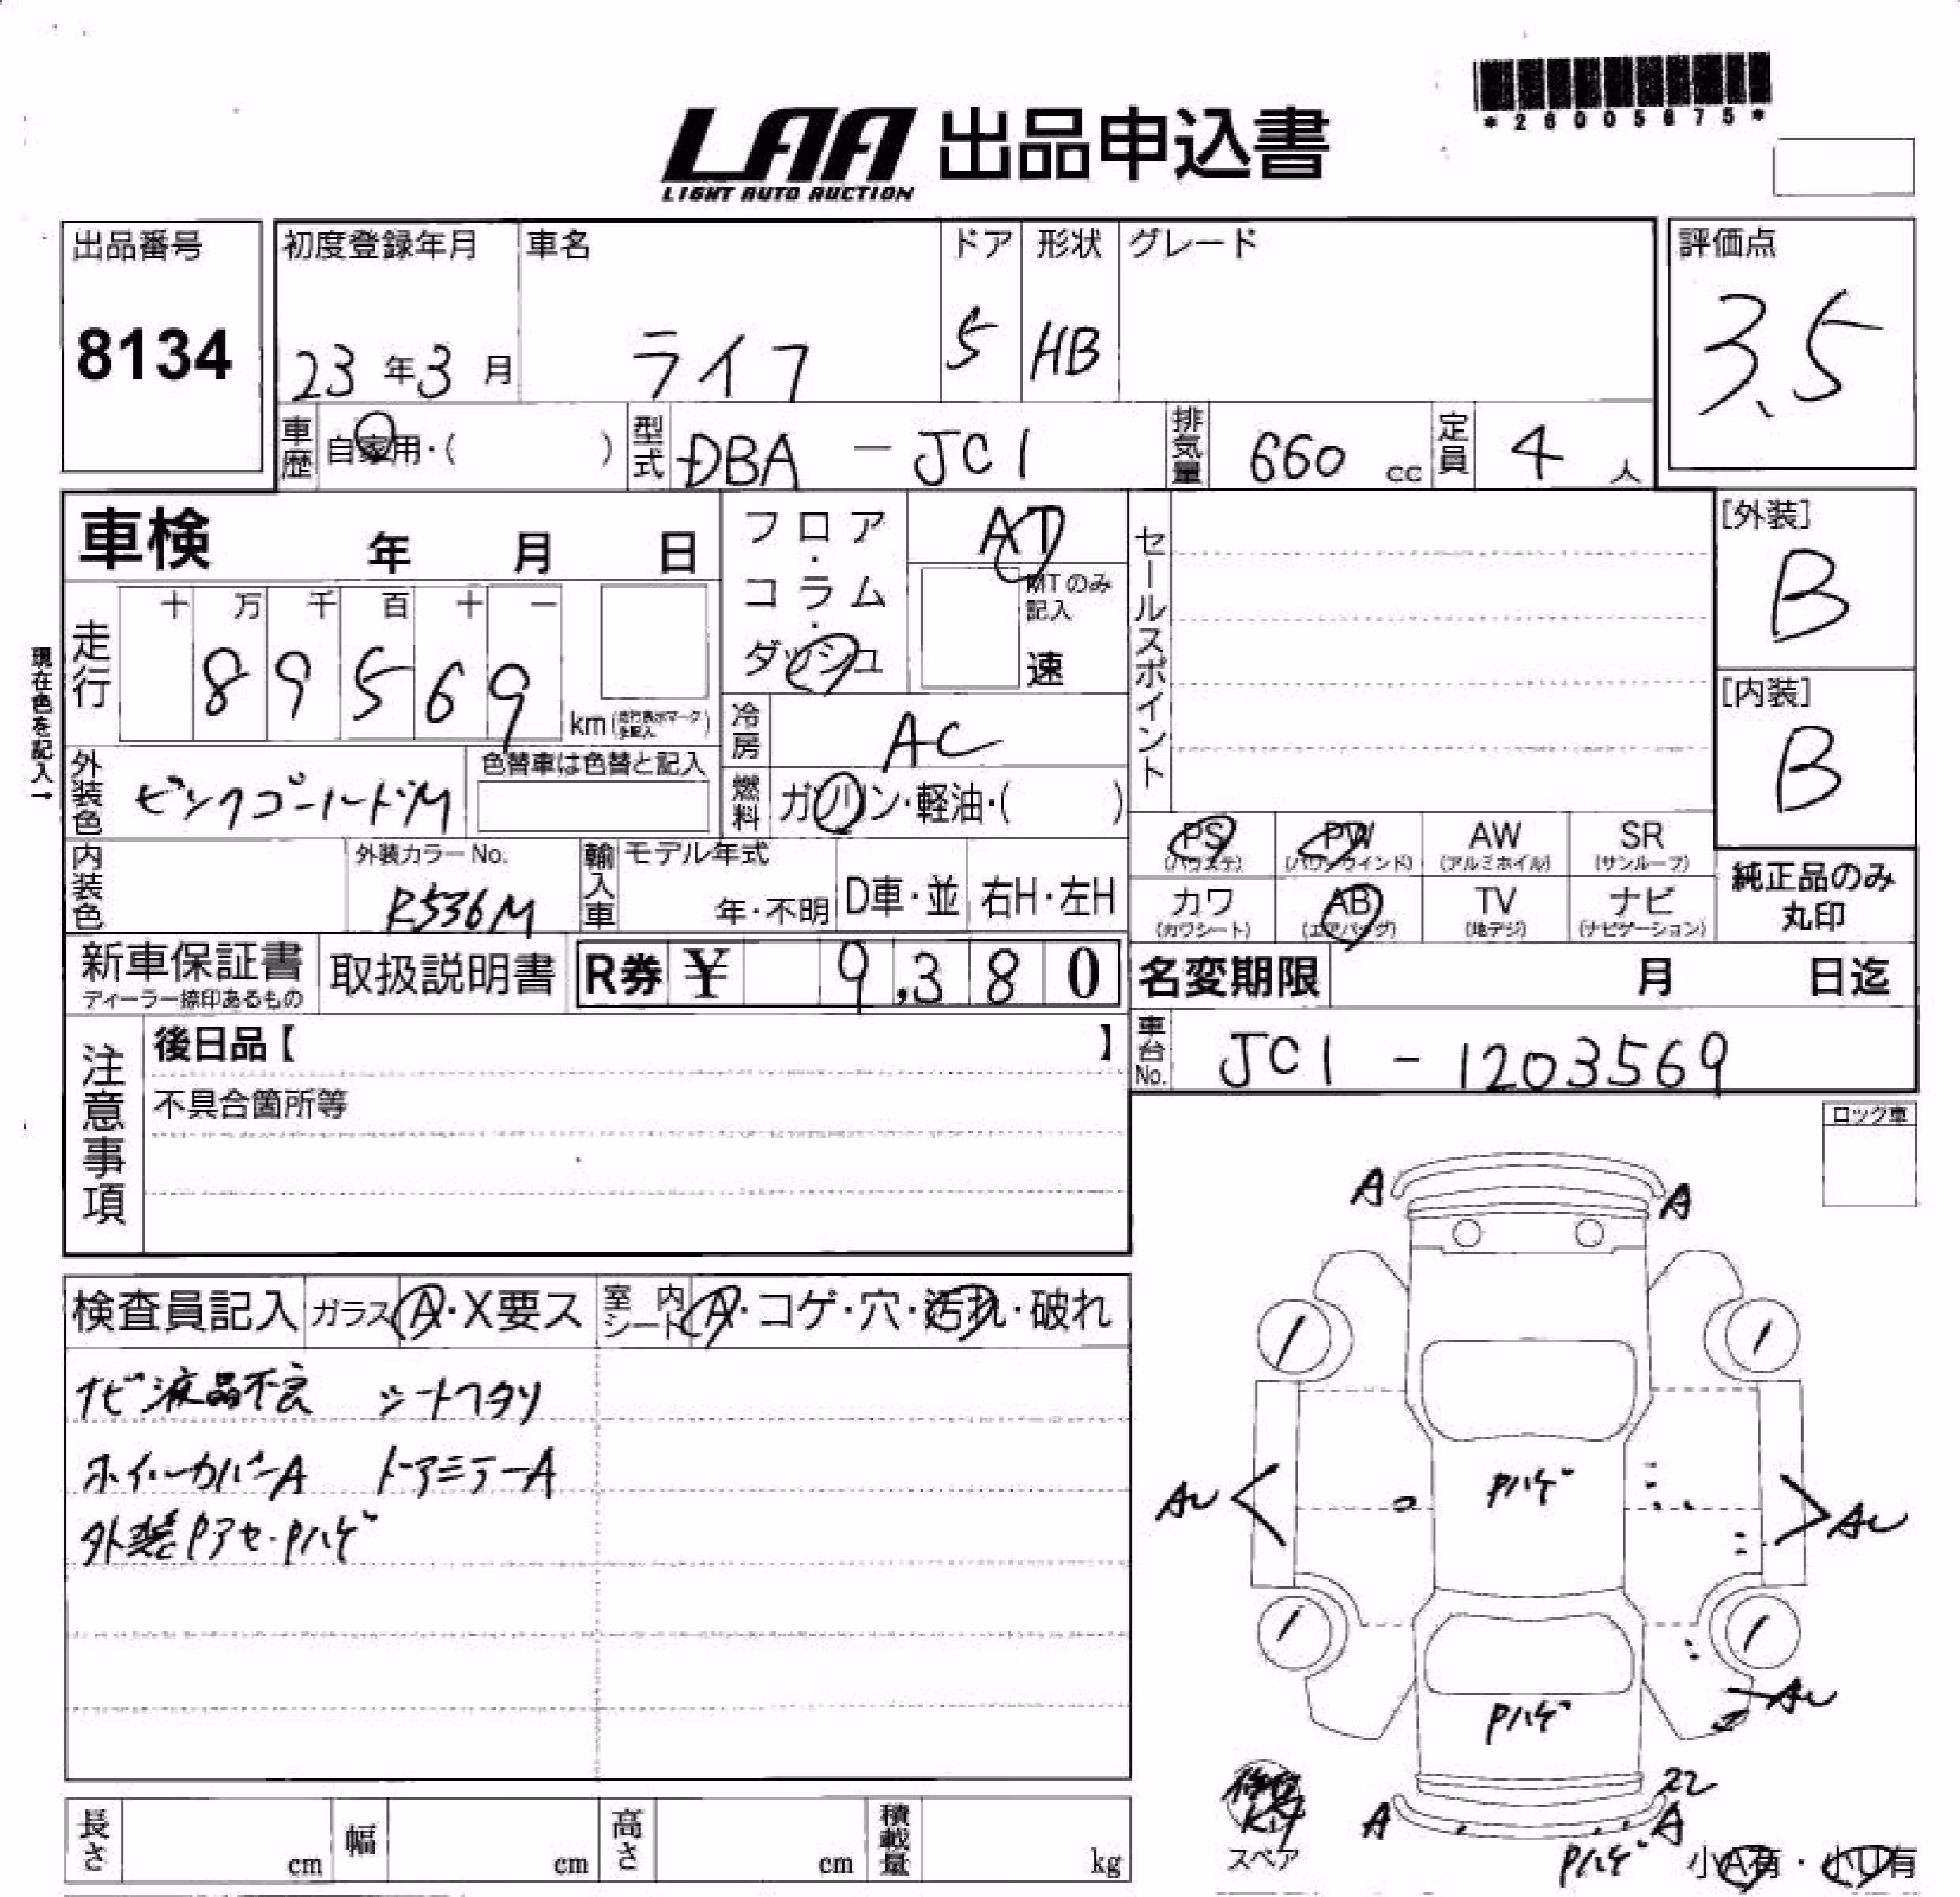 *26005675*
LAA 出品申込書
LIGHT AUTO AUCTION
出品番号 初度登録年月 車名 ドア 形状 グレード 評価点
8134 23年3月 ライフ 5 HB 3.5
車歴 自家用・( ) 型式 DBA - JC1 排気量 660 cc 定員 4 人
車検 年 月 日 フロア・コラム・ダッシュ AT セールスポイント [外装]
MTのみ記入 B
走行 十 万 千 百 十 一
89569 km (走行表示マークを記入) 速 [内装]
現在色を記入→ 冷房 AC B
外装色 ピンクゴールドM 色替車は色替と記入 燃料 ガソリン・軽油・( )
PS PW AW SR
(パワステ) (パワーウインド) (アルミホイル) (サンルーフ)
内装色 外装カラーNo. R536M 輸入車 モデル年式 年・不明 D車・並 右H・左H
カワ AB TV ナビ 純正品のみ丸印
(カワシート) (エアバッグ) (地デジ) (ナビゲーション)
新車保証書 取扱説明書 R券 ¥ 9,380 名変期限 月 日迄
ディーラー捺印あるもの
注意事項 後日品【 】 車台No. JC1 - 1203569
不具合箇所等
ロック車
A A
検査員記入 ガラス A・X要ス 室内シート A・コゲ・穴・汚れ・破れ
ナビ液晶不良 シートヘタリ
ホイールカバーA ドアミラーA
外装Pアセ・Pハゲ
Pハゲ
AU AU
Pハゲ
AU
A A
Pハゲ
スペア 小A有・小U有
長さ cm 幅 cm 高さ cm 積載量 kg